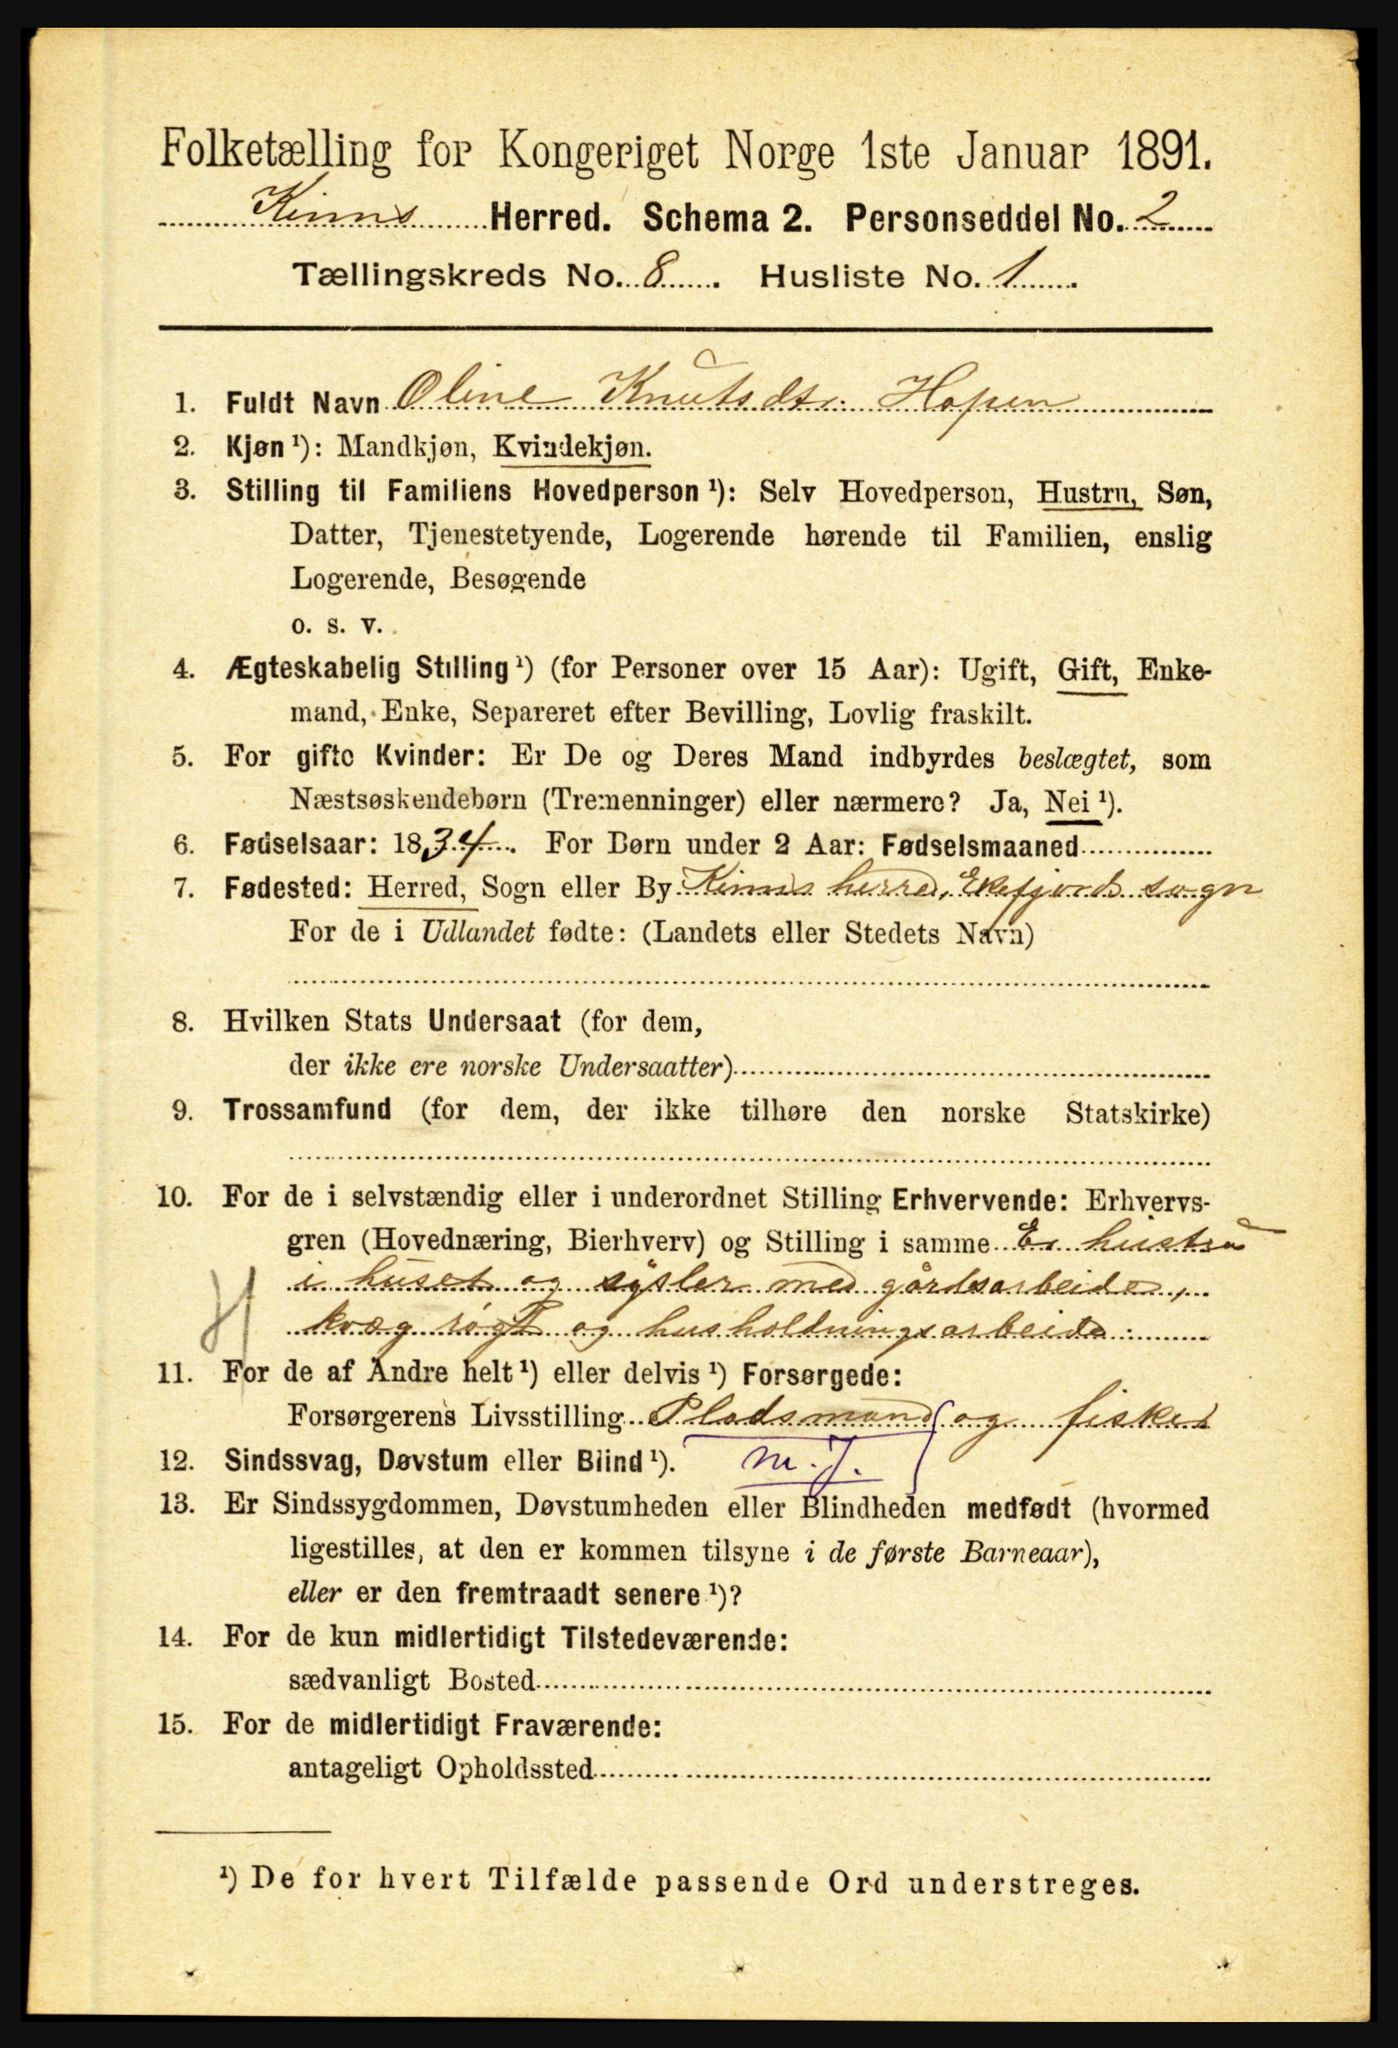 Folketælling for Kongeriget Norge 1ste Januar 1891.
Kinns Herred. Schema 2. Personseddel No. 2
Tællingskreds No. 8. Husliste No. 1.
1. Fuldt Navn Oline Knutsdtr. Hopen
2. Kjøn ¹): Mandkjøn, Kvindekjøn.
3. Stilling til Familiens Hovedperson ¹): Selv Hovedperson, Hustru, Søn,
Datter, Tjenestetyende, Logerende hørende til Familien, enslig
Logerende, Besøgende
o. s. v.
4. Ægteskabelig Stilling ¹) (for Personer over 15 Aar): Ugift, Gift, Enke-
mand, Enke, Separeret efter Bevilling, Lovlig fraskilt.
5. For gifte Kvinder: Er De og Deres Mand indbyrdes beslægtet, som
Næstsøskendebørn (Tremenninger) eller nærmere? Ja, Nei ¹).
6. Fødselsaar: 1834. For Børn under 2 Aar: Fødselsmaaned
7. Fødested: Herred, Sogn eller By Kinns herred, Ekefjords sogn
For de i Udlandet fødte: (Landets eller Stedets Navn)
8. Hvilken Stats Undersaat (for dem,
der ikke ere norske Undersaatter)
9. Trossamfund (for dem, der ikke tilhøre den norske Statskirke)
10. For de i selvstændig eller i underordnet Stilling Erhvervende: Erhvervs-
gren (Hovednæring, Bierhverv) og Stilling i samme Er hustru
i huset og sysler med gårdsarbeide,
H kvæg røgt og husholdningsarbeide.
11. For de af Andre helt ¹) eller delvis ¹) Forsørgede:
Forsørgerens Livsstilling Pladsmand og fisker
12. Sindssvag, Døvstum eller Blind ¹). m. J.
13. Er Sindssygdommen, Døvstumheden eller Blindheden medfødt (hvormed
ligestilles, at den er kommen tilsyne i de første Barneaar),
eller er den fremtraadt senere ¹)?
14. For de kun midlertidigt Tilstedeværende:
sædvanligt Bosted
15. For de midlertidigt Fraværende:
antageligt Opholdssted
¹) De for hvert Tilfælde passende Ord understreges.